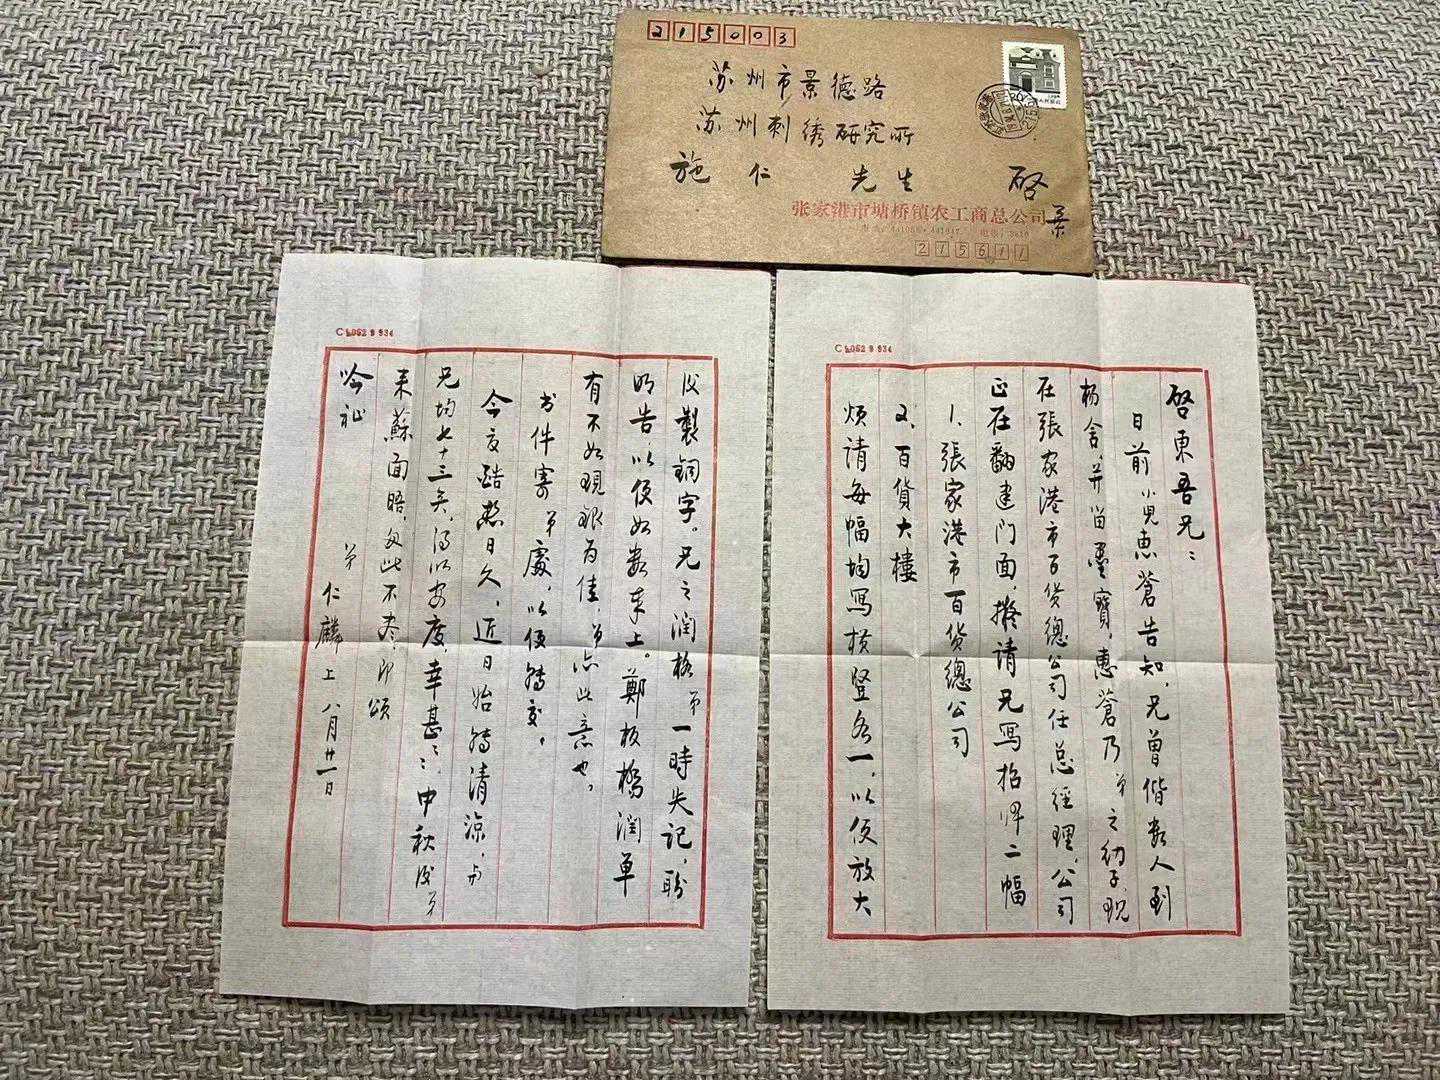 215003
苏州市景德路
苏州刺绣研究所
施仁 先生 启
张家港市塘桥镇农工商总公司
215611
启东吾兄：
日前小儿惠蒼告知，兄曾偕数人到
杨舍，并留墨寶，惠蒼乃弟之幼子，现
在張家港市百货總公司任总經理，公司
正在翻建门面，擬请兄写招牌二幅
1、張家港市百货總公司
2、百貨大樓
烦请每幅均写横竖各一，以便放大
C 5052 9 934
及製铜字。兄之润格弟一時失记，盼
明告，以便如数奉上。鄭板橋润单
有不如現銀为佳，弟亦此意也。
书件寄弟處，以便转交。
今夏酷热日久，近日始转清凉，与
兄均七十三矣，得以安度，幸甚：：中秋后弟
来蘇面晤，匆此不盡，即颂
吟祉
弟 仁麟上 八月廿一日
C 5052 9 934